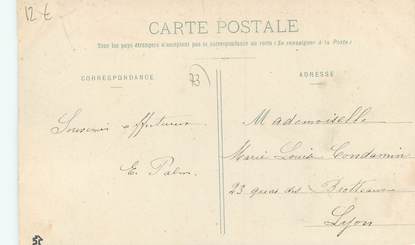 12 €
CARTE POSTALE
Tous les pays étrangers n'acceptent pas la correspondance au recto (Se renseigner à la Poste)
CORRESPONDANCE
73
ADRESSE
Souvenir affectueux
E.
Mademoiselle
Marie Louise Condamin
23 quai des Brotteaux
Lyon